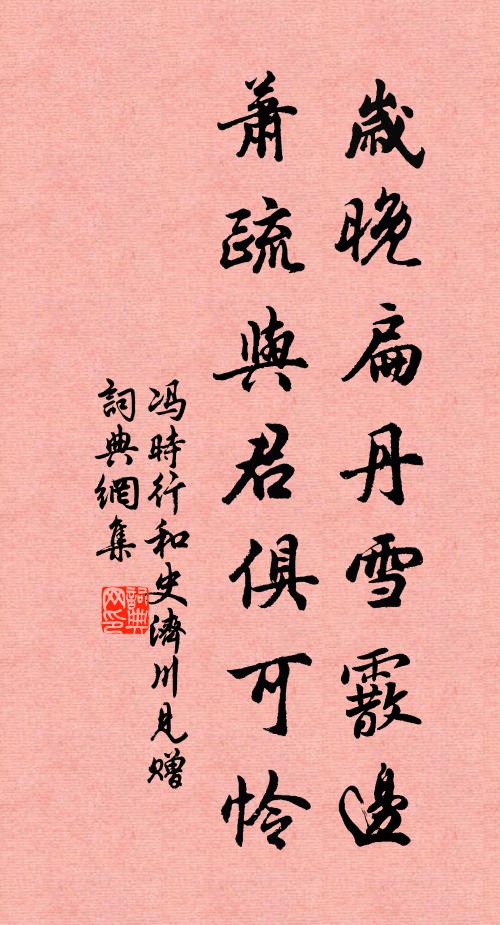 歲晚扁丹雪霰邊
蕭疏與君俱可憐
冯時行和史濟川見赠
詞典網集
詞典网印